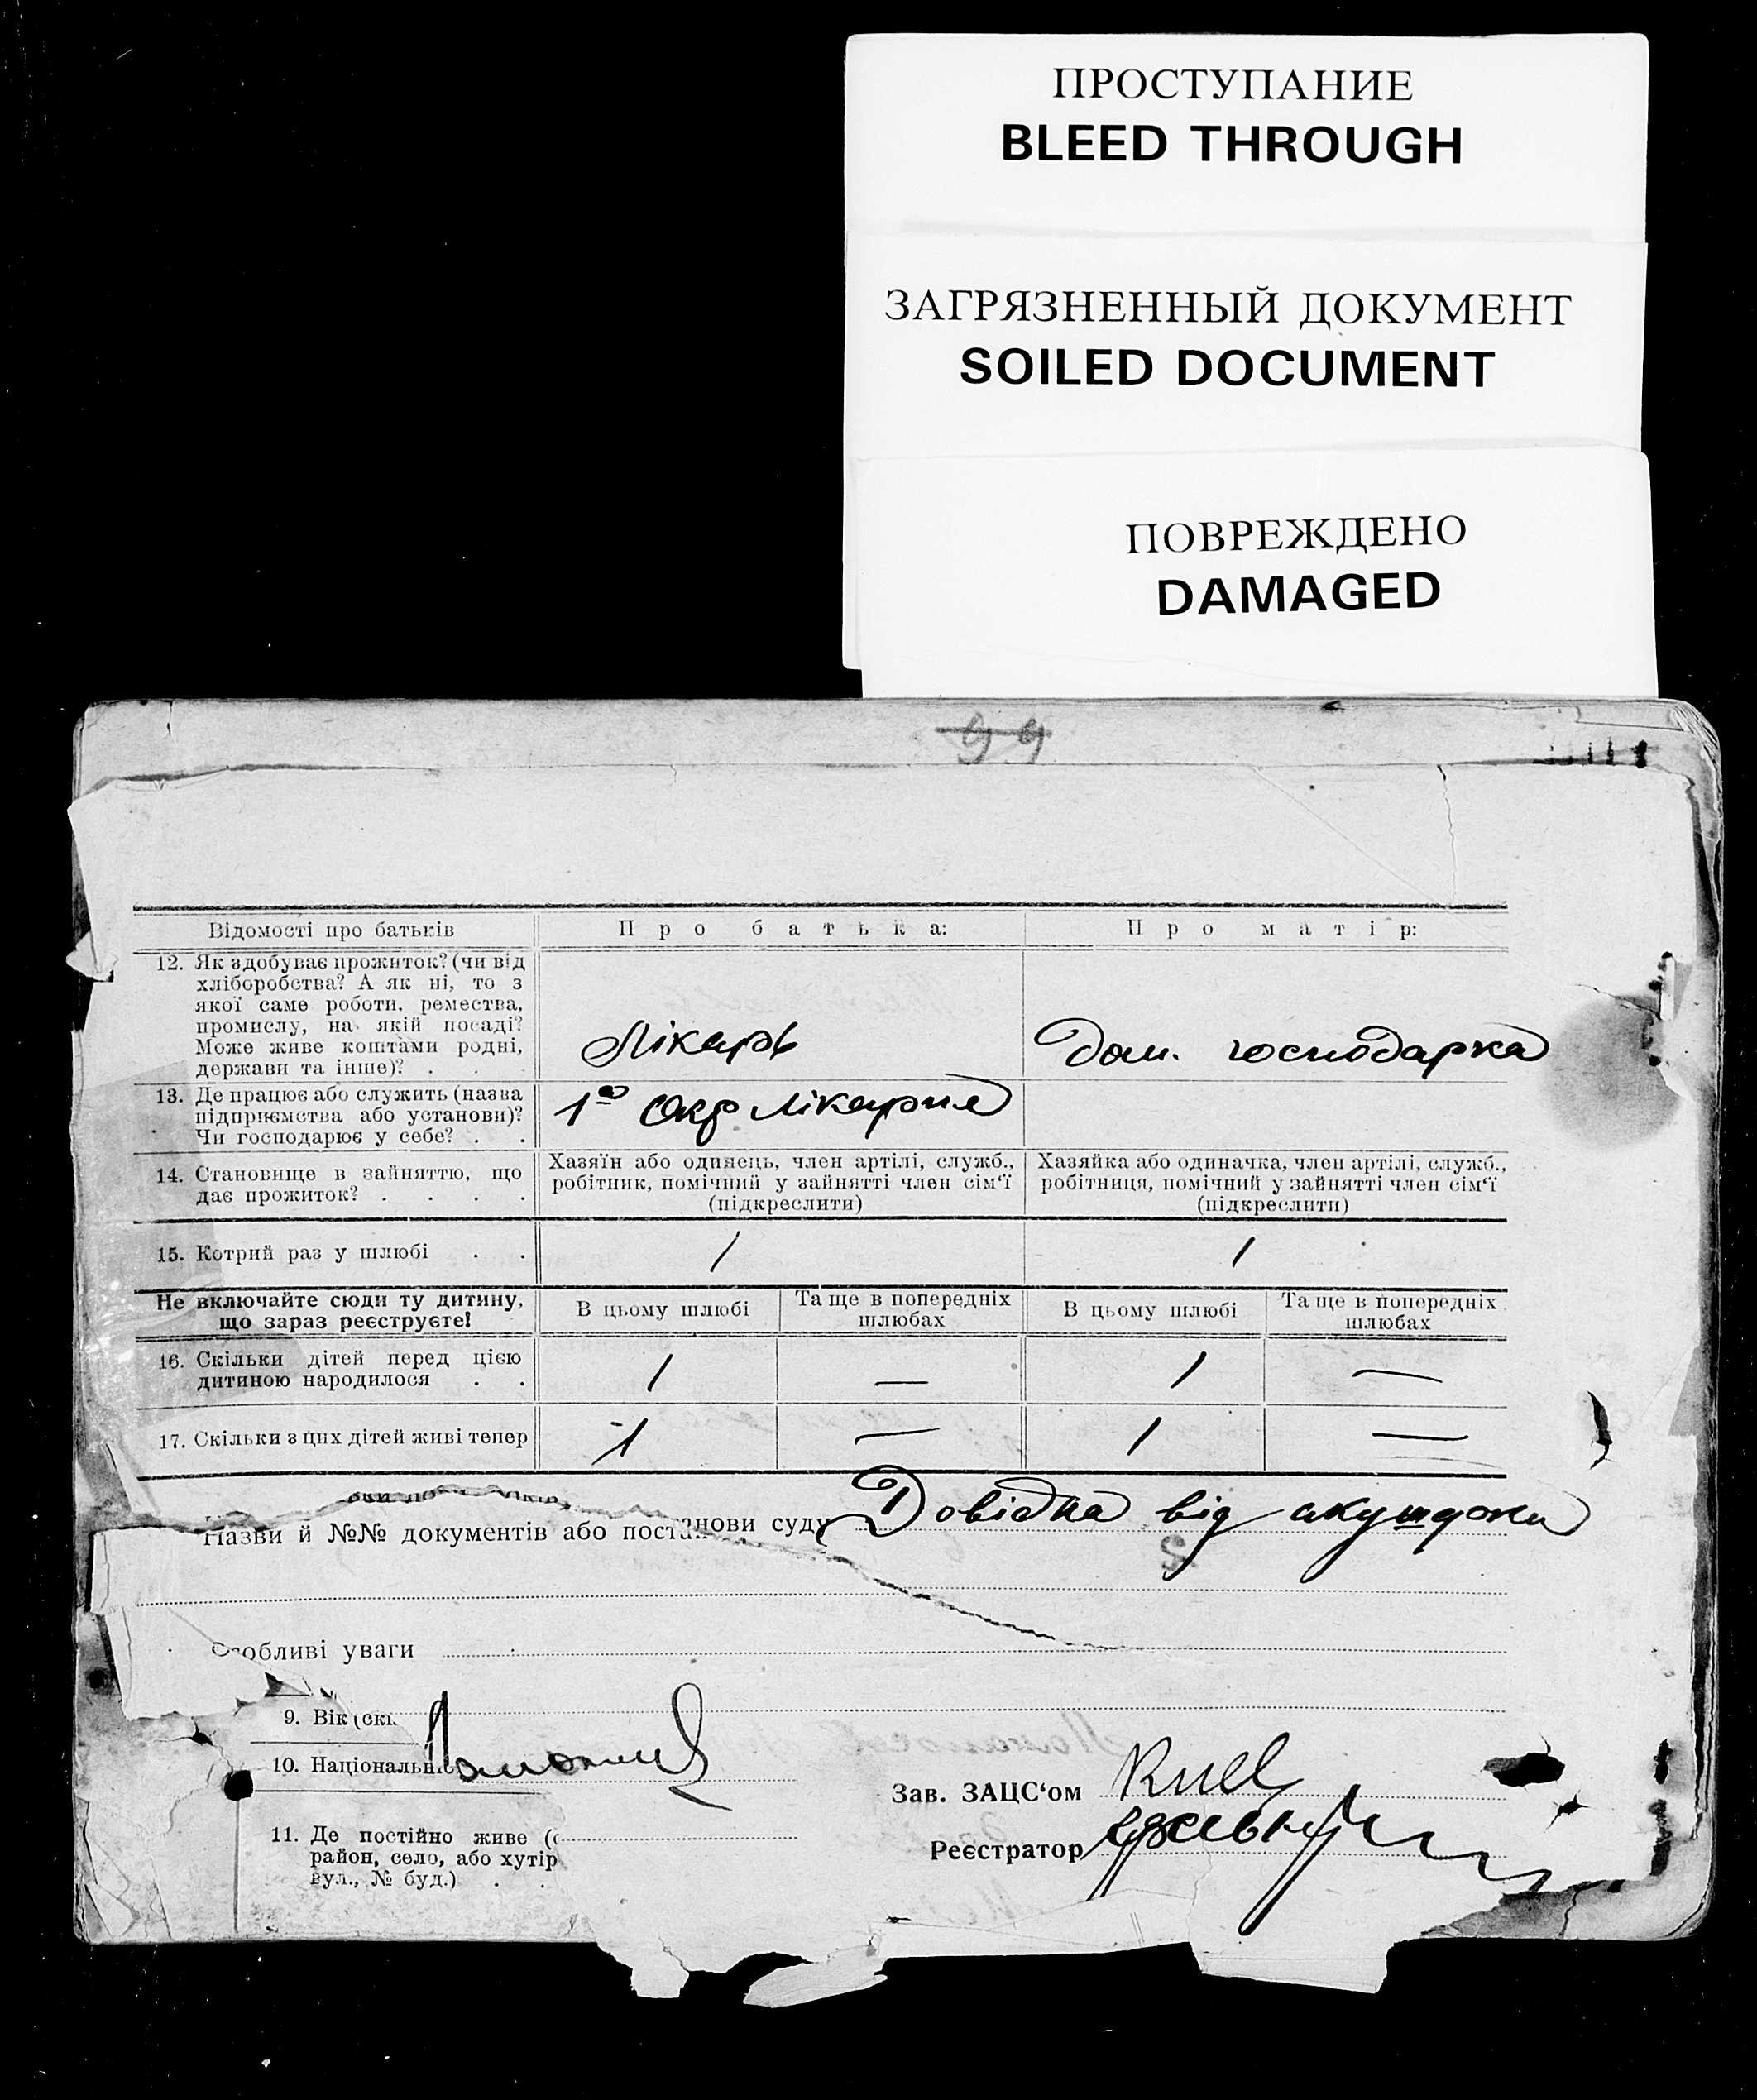 ПРОСТУПАНИЕ
BLEED THROUGH
ЗАГРЯЗНЕННЫЙ ДОКУМЕНТ
SOILED DOCUMENT
ПОВРЕЖДЕНО
DAMAGED
99
Відомості про батьків
Про батька:
Про матір:
12. Як здобуває прожиток? (чи від
хліборобства? А як ні, то з
якої саме роботи, ремества,
промислу, на якій посаді?
Може живе коштами родні,
держави та інше)? .
Лікарь
Дом. господарка
13. Де працює або служить (назва
підприємства або установи)?
Чи господарює у себе? . .
1ᵃ Окр Лікарня
14. Становище в зайняттю, що
дає прожиток? . . . .
Хазяїн або одинець, член артілі, служб.,
робітник, помічний у зайнятті член сім'ї
(підкреслити)
Хазяйка або одиначка, член артілі, служб.,
робітниця, помічний у зайнятті член сім'ї
(підкреслити)
15. Котрий раз у шлюбі . .
1
1
Не включайте сюди ту дитину,
що зараз реєструєте!
В цьому шлюбі
Та ще в попередніх
шлюбах
В цьому шлюбі
Та ще в попередніх
шлюбах
16. Скільки дітей перед цією
дитиною народилося . .
1
—
1
—
17. Скільки з цих дітей живі тепер
1
—
1
—
Назви й №№ документів або постанови суду Довідка від акушорки
Особливі уваги
9. Вік (скі
10. Національн
11. Де постійно живе (
район, село, або хутір
вул., № буд.) .
Зав. ЗАЦС'ом
Реєстратор